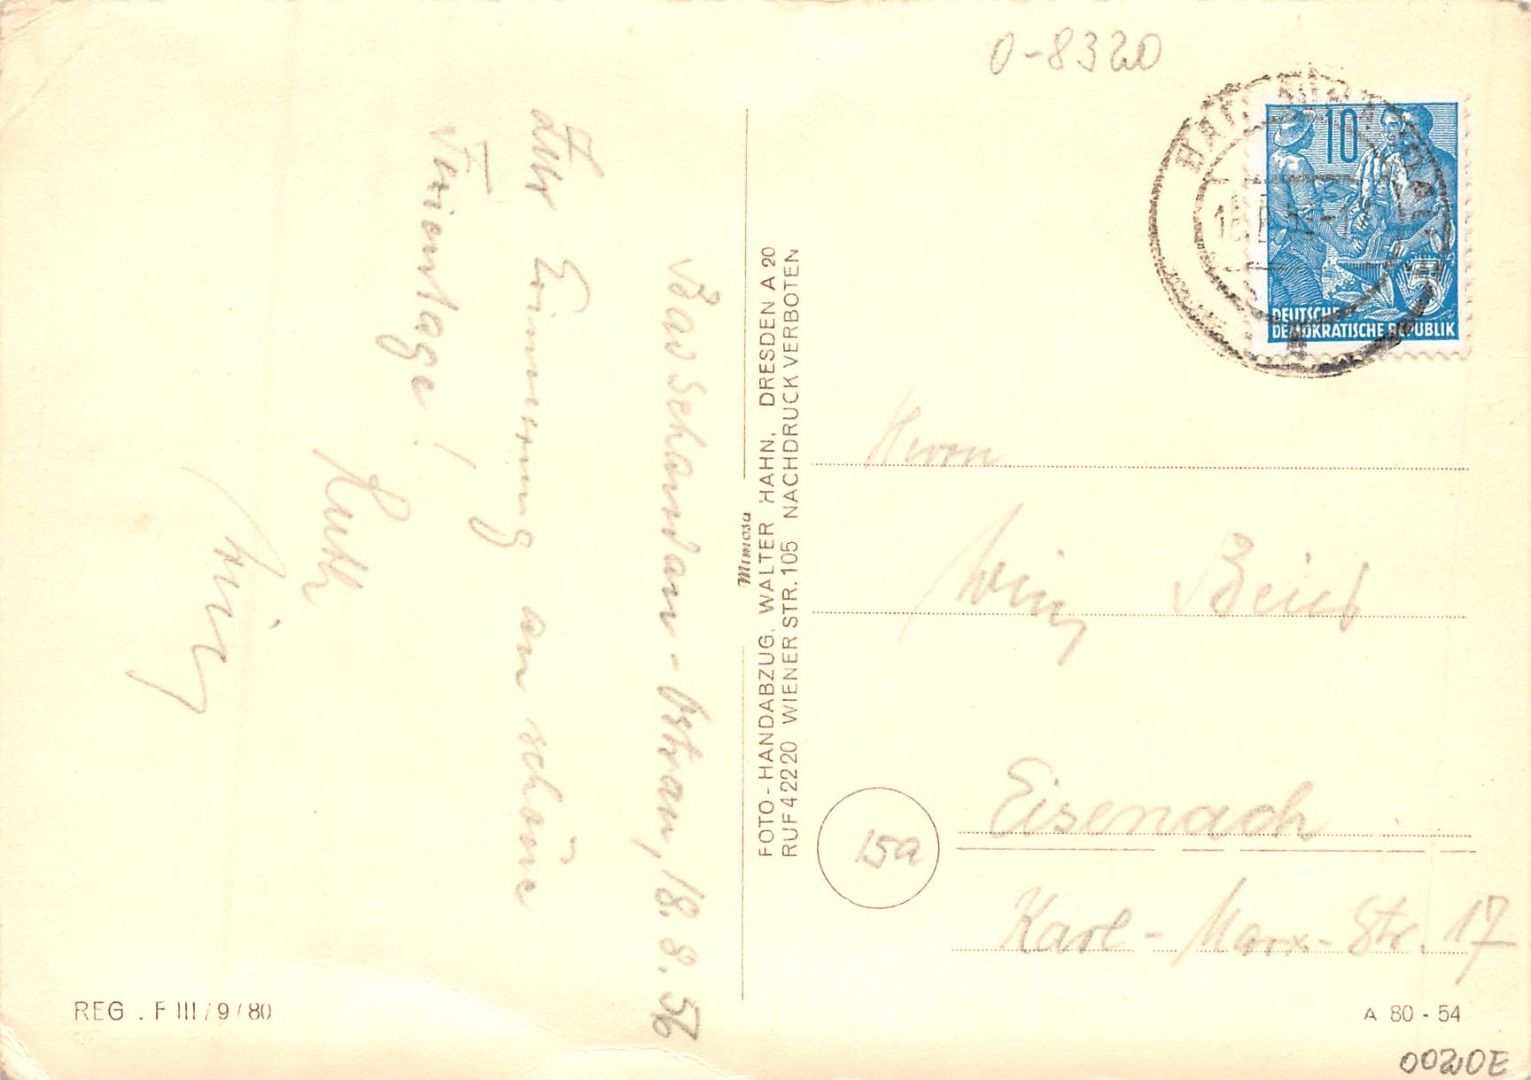 Bad Schandau-Ostrau, 18.8.56
Zur Erinnerung an schöne
Ferientage!
Ruth
Mimosa
FOTO-HANDABZUG. WALTER HAHN, DRESDEN A 20
RUF 42220 WIENER STR. 105 NACHDRUCK VERBOTEN
REG. F III/9/80
0-8320
10
5
DEUTSCHE
DEMOKRATISCHE REPUBLIK
Herrn
Eisenach
15a
Karl-Marx-Str. 17
A 80-54